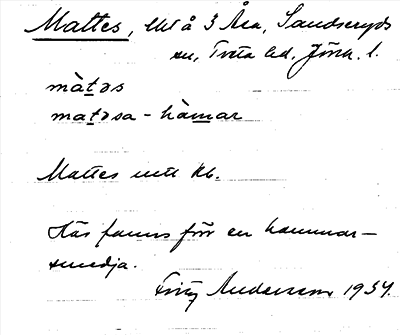 Mattes, lht å 3 Åsa, Sandseryds
sn, Tveta hd, Jönk. l.
màtəs
matəsa-hàmar
Mattes mtt kb.
Här fanns förr en hammar-
smedja.
Fritz Andersson 1934.